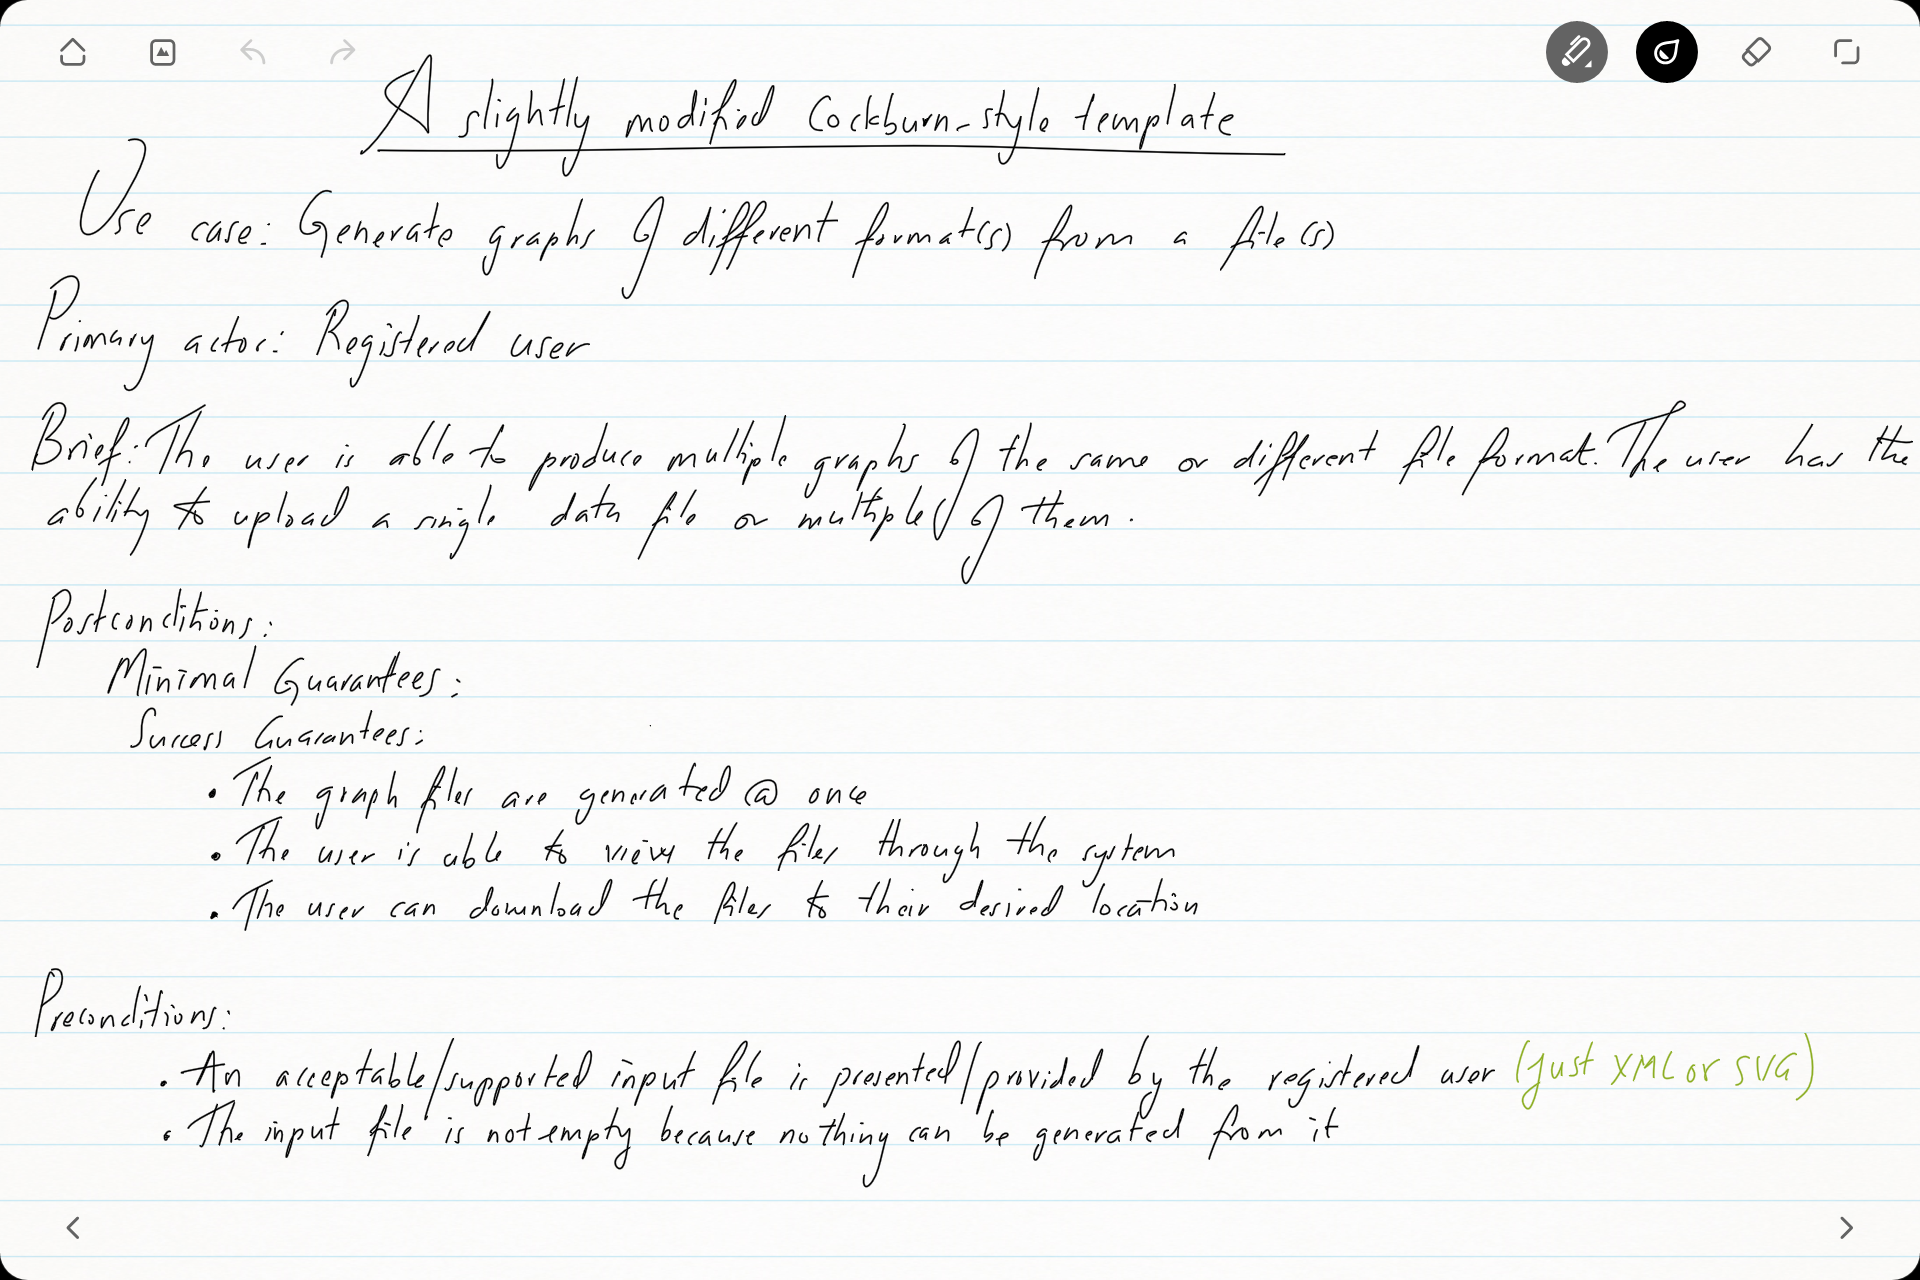 A slightly modified Cockburn-style template
Use case: Generate graphs of different format(s) from a file(s)
Primary actor: Registered user
Brief: The user is able to produce multiple graphs of the same or different file format. The user has the
ability to upload a single data file or multiple of them.
Postconditions:
Minimal Guarantees:
Success Guarantees:
• The graph files are generated @ once
• The user is able to view the files through the system
• The user can download the files to their desired location
Preconditions:
• An acceptable/supported input file is presented/provided by the registered user (just XML or SVG)
• The input file is not empty because nothing can be generated from it